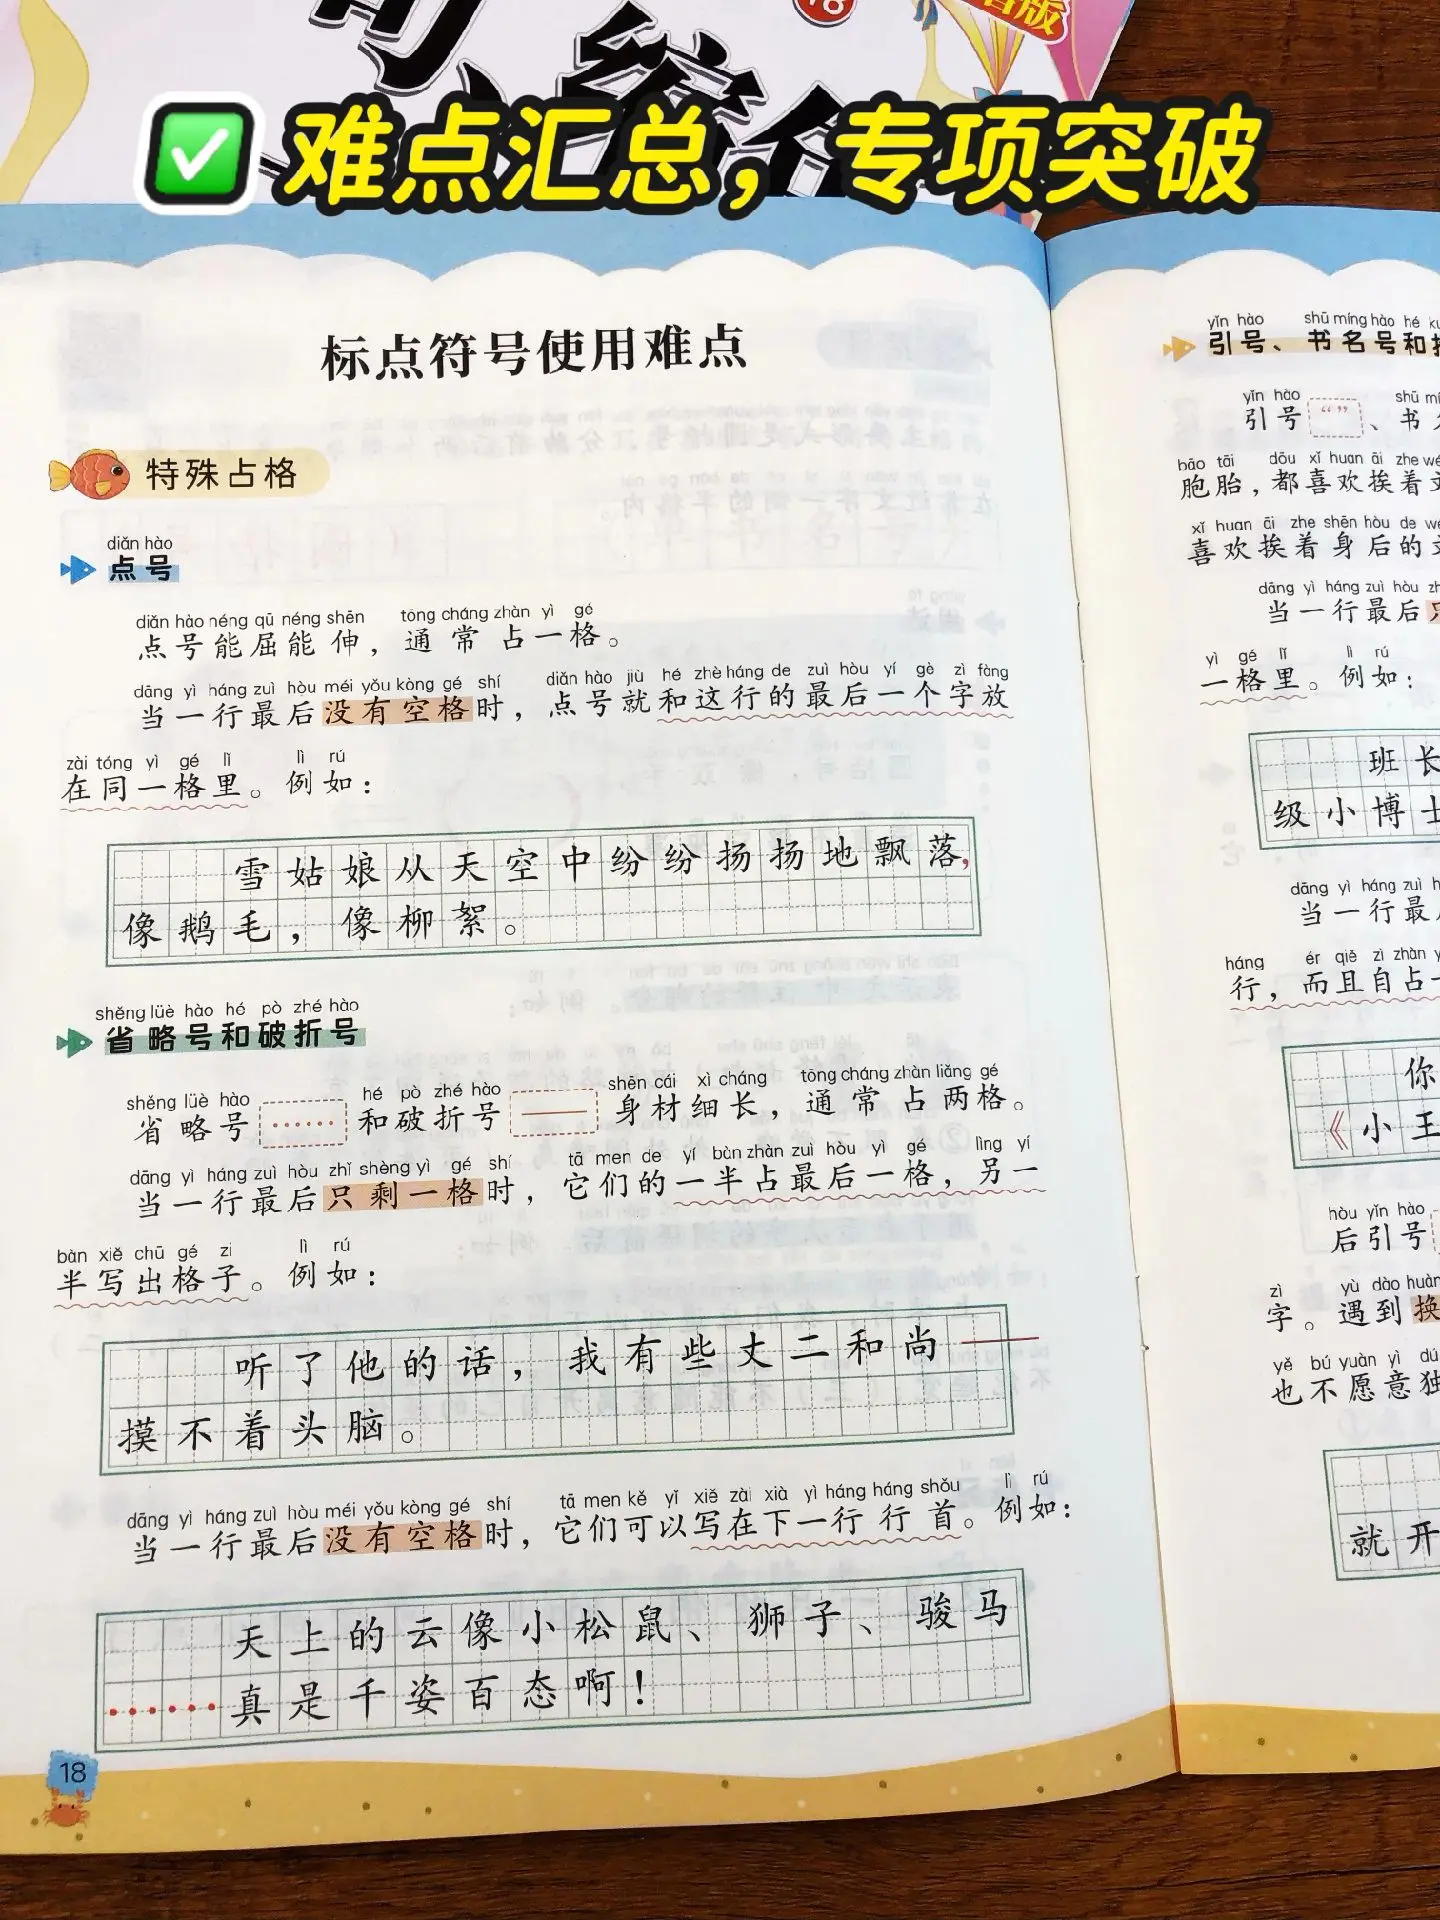 ✅ 难点汇总，专项突破
标点符号使用难点
特殊占格
diǎn hào
点号
diǎn hào néng qū néng shēn tōng cháng zhàn yì gé
点号能屈能伸，通常占一格。
dāng yì háng zuì hòu méi yǒu kòng gé shí diǎn hào jiù hé zhè háng de zuì hòu yí gè zì fàng
当一行最后没有空格时，点号就和这行的最后一个字放
zài tóng yì gé lǐ lì rú
在同一格里。例如：
雪姑娘从天空中纷纷扬扬地飘落，
像鹅毛，像柳絮。
shěng lüè hào hé pò zhé hào
省略号和破折号
shěng lüè hào hé pò zhé hào shēn cái xì cháng tōng cháng zhàn liǎng gé
省略号 …… 和破折号 —— 身材细长，通常占两格。
dāng yì háng zuì hòu zhǐ shèng yì gé shí tā men de yí bàn zhàn zuì hòu yì gé lìng yí
当一行最后只剩一格时，它们的一半占最后一格，另一
bàn xiě chū gé zi lì rú
半写出格子。例如：
听了他的话，我有些丈二和尚——
摸不着头脑。
dāng yì háng zuì hòu méi yǒu kòng gé shí tā men kě yǐ xiě zài xià yì háng háng shǒu lì rú
当一行最后没有空格时，它们可以写在下一行行首。例如：
天上的云像小松鼠、狮子、骏马
……真是千姿百态啊！
18
yǐn hào shū míng hào hé
引号、书名号和
yǐn hào
引号 “ ” 、书
bāo tāi dōu xǐ huan āi zhe
胞胎，都喜欢挨着
xǐ huan āi zhe shēn hòu de
喜欢挨着身后的
dāng yì háng zuì hòu
当一行最后
yì gé lǐ lì rú
一格里。例如：
班长
级小博士
dāng yì háng zuì
当一行最
háng ér qiě zì zhàn
行，而且自占
你
《小王
hòu yǐn hào
后引号
zì yù dào huàn
字。遇到换
yě bú yuàn yì dú
也不愿意独
就开